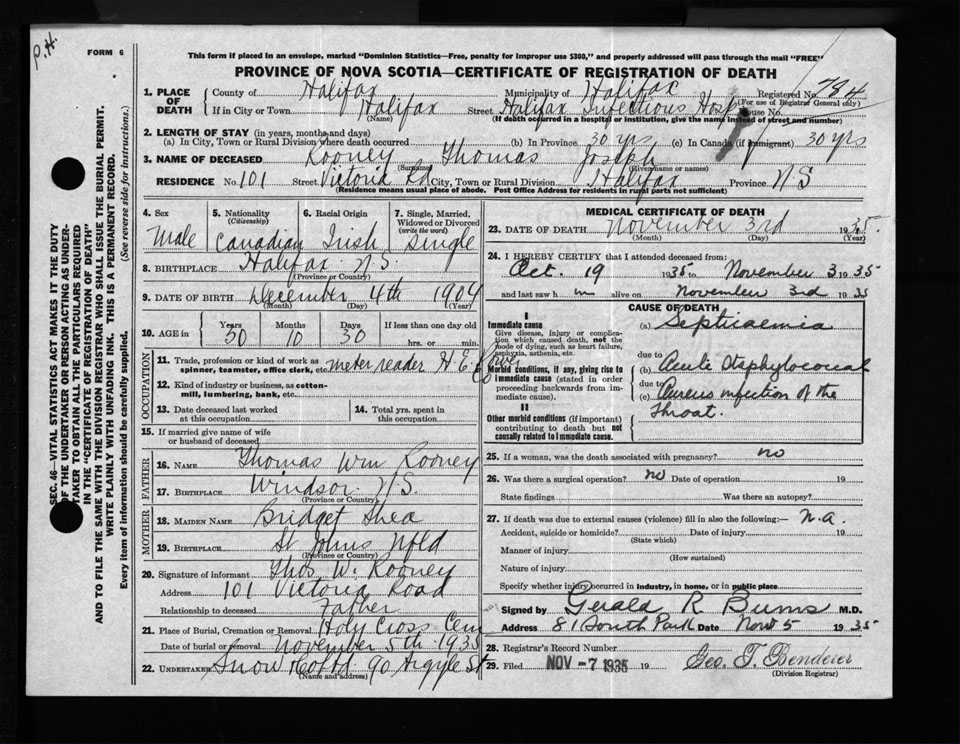 P.H.
FORM 6
This form if placed in an envelope, marked "Dominion Statistics—Free, penalty for improper use $300," and properly addressed will pass through the mail "FREE"
PROVINCE OF NOVA SCOTIA—CERTIFICATE OF REGISTRATION OF DEATH
1. PLACE OF DEATH County of Halifax Municipality of Halifax Registered No. 784
(For use of Registrar General only)
If in City or Town Halifax Street Halifax Infectious Hosp House No.
(Name) (If death occurred in a hospital or institution, give the name instead of street and number)
2. LENGTH OF STAY (in years, months and days)
(a) In City, Town or Rural Division where death occurred (b) In Province 30 yrs (c) In Canada (if immigrant) 30 yrs
3. NAME OF DECEASED Rooney Thomas Joseph
(Surname) (Given name or names)
RESIDENCE No. 101 Street Victoria Rd City, Town or Rural Division Halifax Province N S
(Residence means usual place of abode. Post Office Address for residents in rural parts not sufficient)
4. Sex Male
5. Nationality (Citizenship) Canadian
6. Racial Origin Irish
7. Single, Married, Widowed or Divorced (write the word) Single
8. BIRTHPLACE Halifax N.S.
(Province or Country)
9. DATE OF BIRTH December 4th 1904
(Month) (Day) (Year)
10. AGE in Years 30 Months 10 Days 30 If less than one day old
hrs. or min.
OCCUPATION
11. Trade, profession or kind of work as spinner, teamster, office clerk, etc. meter reader H. E. Power Co
12. Kind of industry or business, as cotton-mill, lumbering, bank, etc.
13. Date deceased last worked at this occupation
14. Total yrs. spent in this occupation
15. If married give name of wife or husband of deceased
FATHER
16. NAME Thomas Wm Rooney
17. BIRTHPLACE Windsor N.S.
(Province or Country)
MOTHER
18. MAIDEN NAME Bridget Shea
19. BIRTHPLACE St Johns Nfld
(Province or Country)
20. Signature of informant Thos W. Rooney
Address 101 Victoria Road
Relationship to deceased Father
21. Place of Burial, Cremation or Removal Holy Cross Cem
Date of burial or removal November 5th 1935
22. UNDERTAKER Snow & Co Ltd 90 Argyle St
(Name and address)
MEDICAL CERTIFICATE OF DEATH
23. DATE OF DEATH November 3rd 1935
(Month) (Day) (Year)
24. I HEREBY CERTIFY that I attended deceased from:
Oct. 19 1935 to November 3 1935
and last saw h im alive on November 3rd 1935
CAUSE OF DEATH
I
Immediate cause
Give disease, injury or complication which caused death, not the mode of dying, such as heart failure, asphyxia, asthenia, etc.
(a) Septicaemia
due to
Morbid conditions, if any, giving rise to immediate cause (stated in order proceeding backwards from immediate cause).
(b) Acute Staphylococcal
due to
(c) Aureus infection of the throat.
II
Other morbid conditions (if important) contributing to death but not causally related to immediate cause.
25. If a woman, was the death associated with pregnancy? no
26. Was there a surgical operation? no Date of operation 19
State findings Was there an autopsy?
27. If death was due to external causes (violence) fill in also the following:— N.A.
Accident, suicide or homicide? Date of injury 19
(State which)
Manner of injury
(How sustained)
Nature of injury
Specify whether injury occurred in industry, in home, or in public place
Signed by Gerald R Burns M.D.
Address 81 South Park Date Nov 5 1935
28. Registrar's Record Number
29. Filed NOV -7 1935 19 Geo. T.
(Division Registrar)
SEC. 46—VITAL STATISTICS ACT MAKES IT THE DUTY OF THE UNDERTAKER OR PERSON ACTING AS UNDERTAKER TO OBTAIN ALL THE PARTICULARS REQUIRED IN THE "CERTIFICATE OF REGISTRATION OF DEATH" AND TO FILE THE SAME WITH THE DIVISION REGISTRAR WHO SHALL ISSUE THE BURIAL PERMIT.
WRITE PLAINLY WITH UNFADING INK. THIS IS A PERMANENT RECORD.
Every item of information should be carefully supplied. (See reverse side for instructions.)